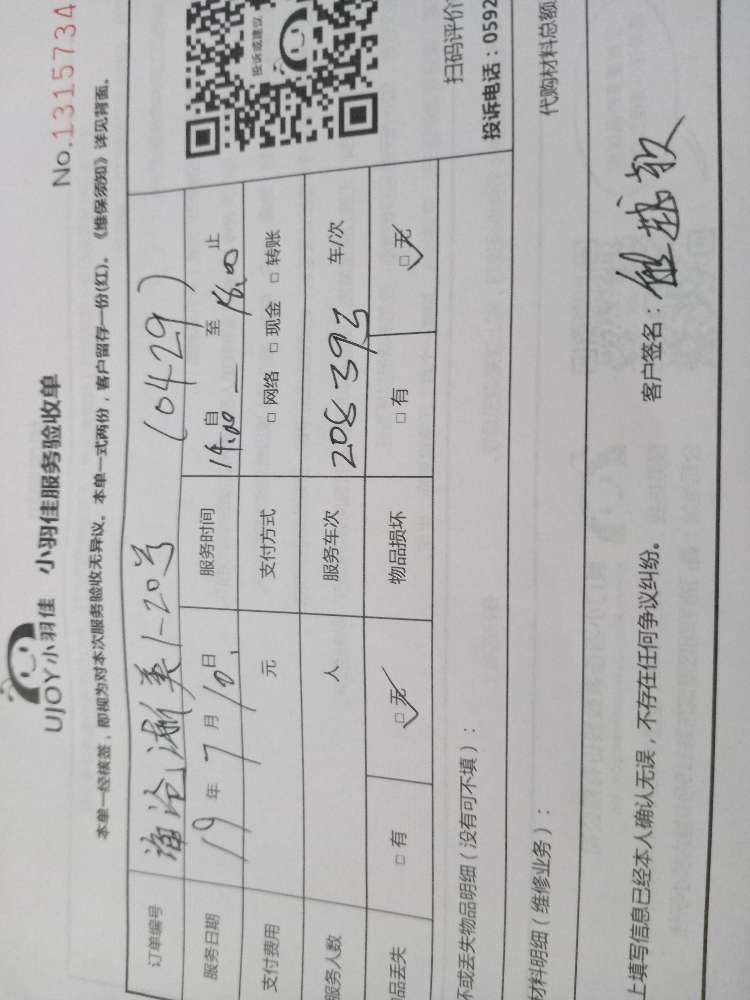 No.1315734
UJOY小羽佳 小羽佳服务验收单
本单一经核签，即视为对本次服务验收无异议。本单一式两份，客户留存一份(红)。《维保须知》详见背面。
订单编号 海沧 浙美1-20号 (0429)
服务日期 19年7月10日 服务时间 自14.00 — 至18.00止
支付费用 元 支付方式 □网络 □现金 □转账
服务人数 人 服务车次 208393 车/次
品丢失 □有 □无 物品损坏 □有 □无
投诉或建议
扫码评价
投诉电话：0592
坏或丢失物品明细（没有可不填）：
材料明细（维修业务）： 代购材料总额
上填写信息已经本人确认无误，不存在任何争议纠纷。 客户签名：